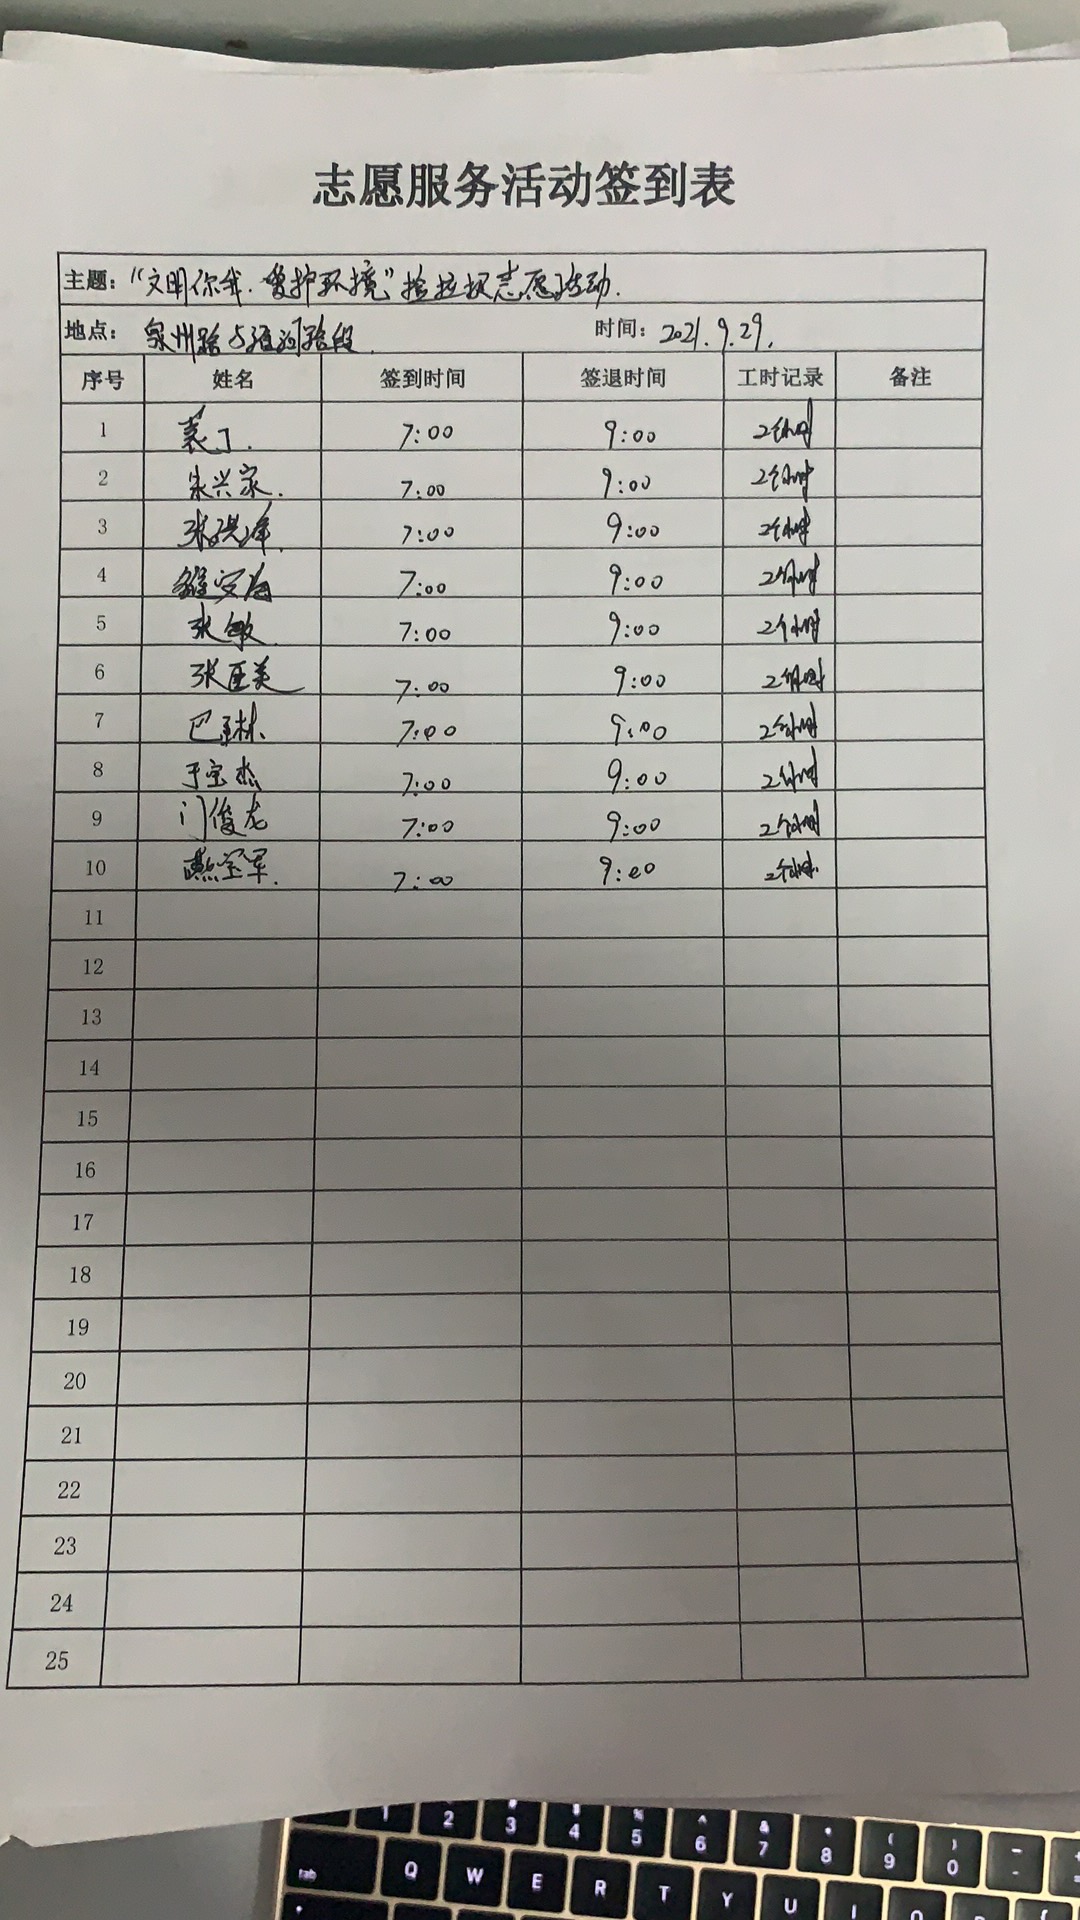 志愿服务活动签到表
主题："文明你我.爱护环境"捡垃圾志愿活动.
地点：泉州路与 路段 时间：2021.9.29.
序号 姓名 签到时间 签退时间 工时记录 备注
1 袁丁. 7:00 9:00 2个小时
2 宋兴家. 7:00 9:00 2个小时
3 张 峰. 7:00 9:00 2个小时
4 7:00 9:00 2个小时
5 张敏. 7:00 9:00 2个小时
6 张匡美 7:00 9:00 2个小时
7 巴 林 7:00 9:00 2个小时
8 于宝杰 7:00 9:00 2个小时
9 门俊龙 7:00 9:00 2个小时
10 燕宝军. 7:00 9:00 2个小时.
11
12
13
14
15
16
17
18
19
20
21
22
23
24
25
1 2 # 3 $ 4 % 5 ^ 6 & 7 * 8 ( 9 ) 0 - +
tab Q W E R T Y U I O P {